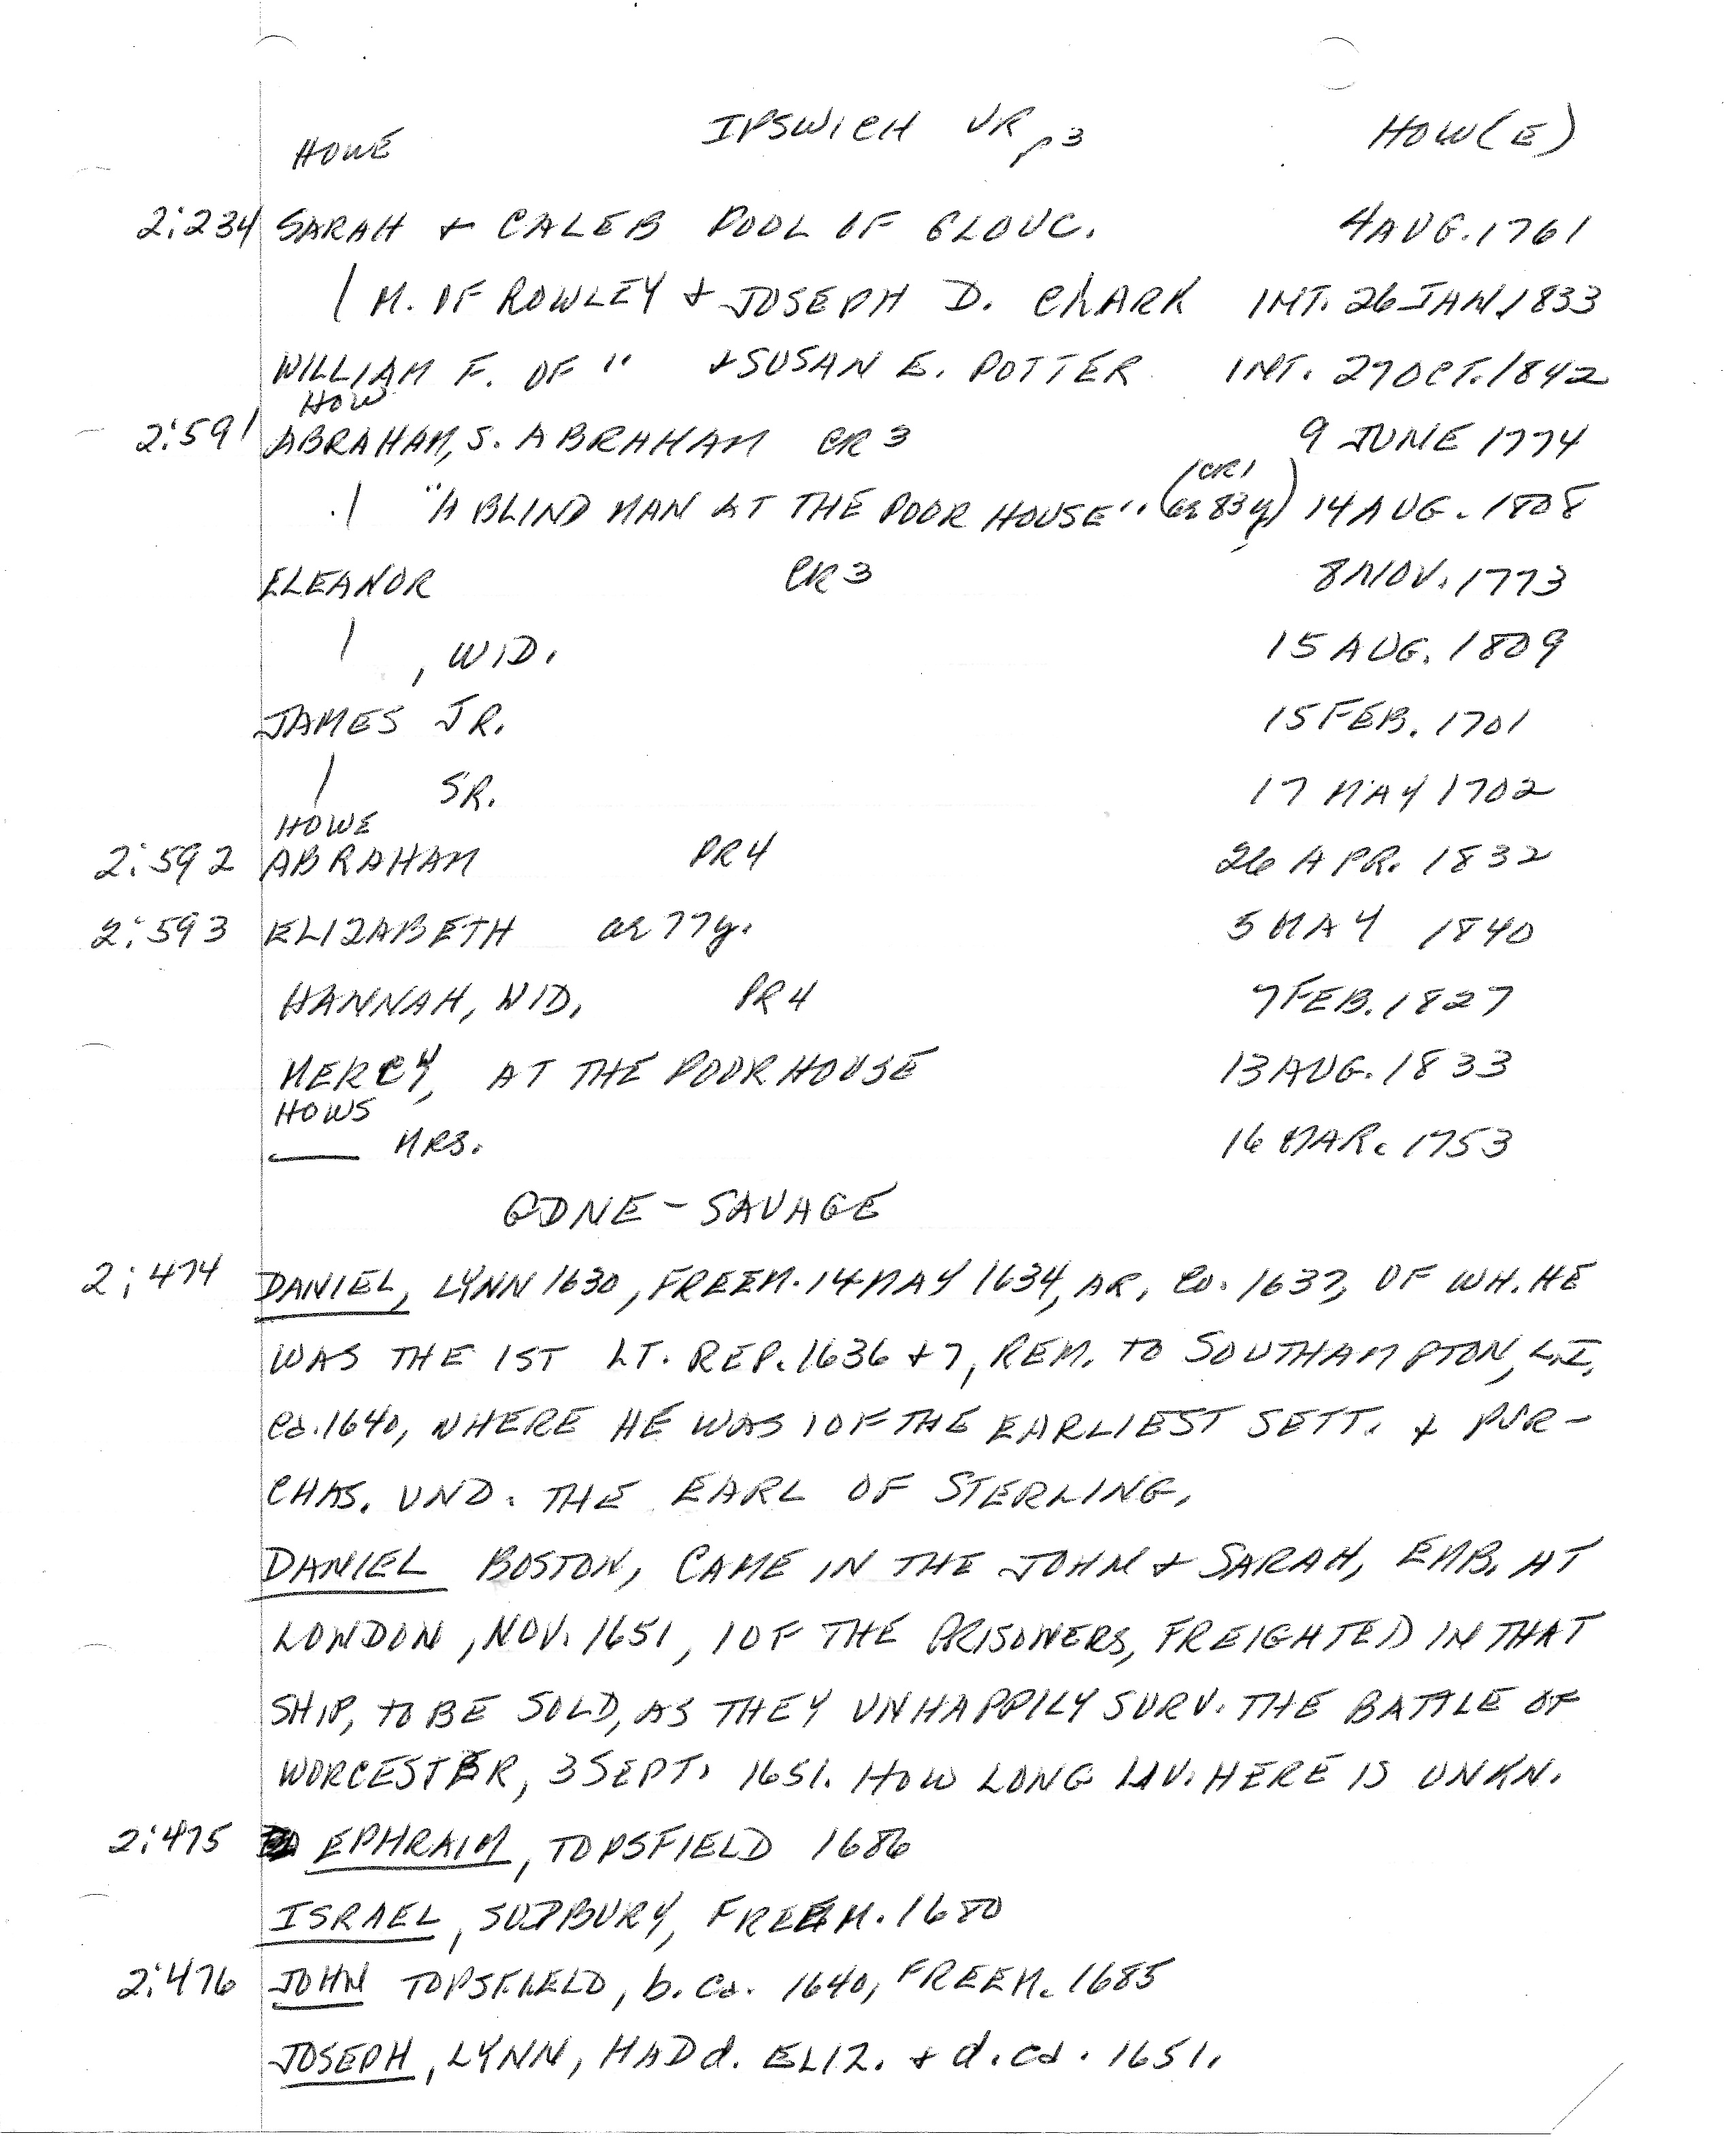 HOWE IPSWICH VR p3 HOW(E)
2:234 SARAH + CALEB POOL OF GLOUC. 4 AUG. 1761
| M. OF ROWLEY + JOSEPH D. CLARK INT. 26 JAN. 1833
WILLIAM F. OF " + SUSAN E. POTTER INT. 27 OCT. 1842
HOW
2:591 ABRAHAM, S. ABRAHAM CR3 9 JUNE 1774
| "A BLIND MAN AT THE POOR HOUSE" (CR1 æ 83y) 14 AUG. 1808
ELEANOR CR3 8 NOV. 1773
| , WID. 15 AUG. 1809
JAMES JR. 15 FEB. 1701
| SR. 17 MAY 1702
HOWE
2:592 ABRAHAM PR4 26 APR. 1832
2:593 ELIZABETH æ 77y. 5 MAY 1840
HANNAH, WID. PR4 7 FEB. 1827
MERCY, AT THE POOR HOUSE 13 AUG. 1833
HOWS
—— MRS. 16 MAR. 1753
GDNE - SAVAGE
2:474 DANIEL, LYNN 1630, FREEM. 14 MAY 1634, AR. CO. 1637, OF WH. HE
WAS THE 1ST LT. REP. 1636 + 7, REM. TO SOUTHAMPTON, L.I.
ca. 1640, WHERE HE WAS 1 OF THE EARLIEST SETT. + PUR-
CHAS. UND. THE EARL OF STERLING.
DANIEL BOSTON, CAME IN THE JOHN + SARAH, EMB. AT
LONDON, NOV. 1651, 1 OF THE PRISONERS, FREIGHTED IN THAT
SHIP, TO BE SOLD, AS THEY UNHAPPILY SURV. THE BATTLE OF
WORCESTER, 3 SEPT. 1651. HOW LONG LIV. HERE IS UNKN.
2:475 EPHRAIM, TOPSFIELD 1686
ISRAEL, SUDBURY, FREEM. 1680
2:476 JOHN TOPSFIELD, b. ca. 1640, FREEM. 1685
JOSEPH, LYNN, HAD d. ELIZ. + d. ca. 1651.